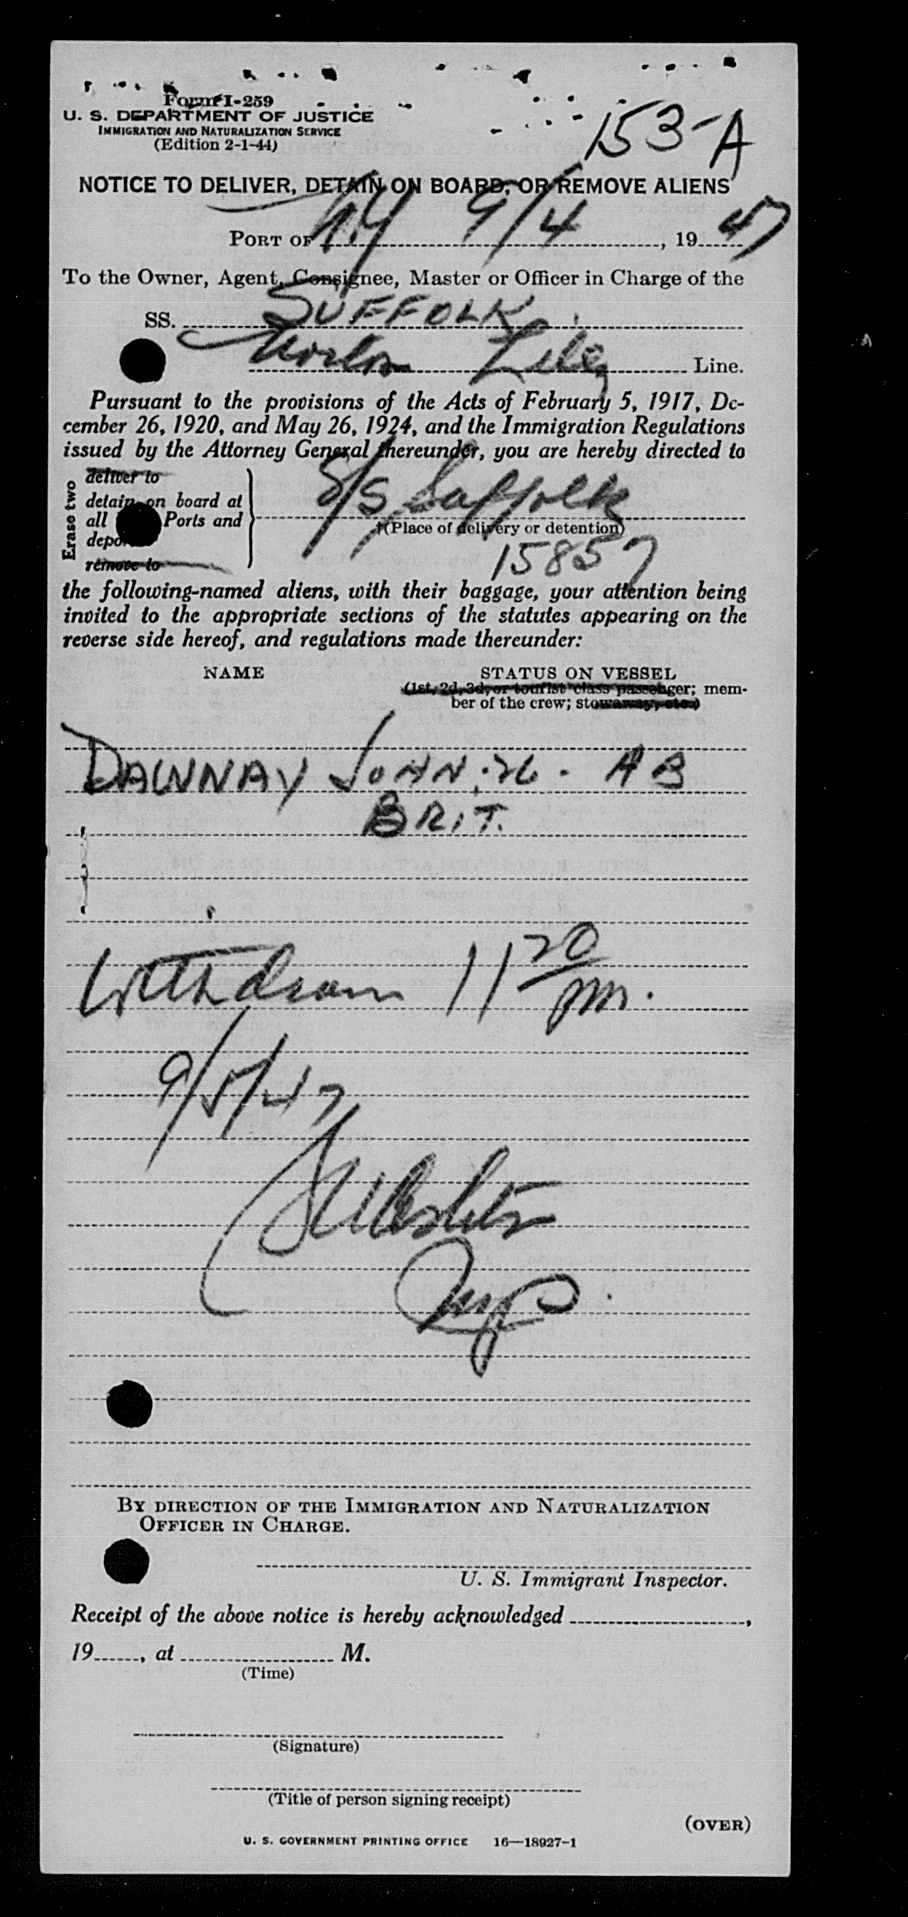 Form I-259
U. S. DEPARTMENT OF JUSTICE
IMMIGRATION AND NATURALIZATION SERVICE
(Edition 2-1-44)
153-A
NOTICE TO DELIVER, DETAIN ON BOARD, OR REMOVE ALIENS
PORT OF N.Y 9/4, 1947
To the Owner, Agent, Consignee, Master or Officer in Charge of the
SS. SUFFOLK
Norton Lilly Line.
Pursuant to the provisions of the Acts of February 5, 1917, De-
cember 26, 1920, and May 26, 1924, and the Immigration Regulations
issued by the Attorney General thereunder, you are hereby directed to
Erase two
deliver to
detain on board at
all Ports and
remove to
S/S Suffolk
(Place of delivery or detention)
15857
the following-named aliens, with their baggage, your attention being
invited to the appropriate sections of the statutes appearing on the
reverse side hereof, and regulations made thereunder:
NAME STATUS ON VESSEL
(1st, 2d, 3d, or tourist class passenger; mem-
ber of the crew; stowaway, etc.)
DAWNAY JOHN. 26 - AB
BRIT.
Withdrawn 11 20 pm.
9/5/47
BY DIRECTION OF THE IMMIGRATION AND NATURALIZATION
OFFICER IN CHARGE.
U. S. Immigrant Inspector.
Receipt of the above notice is hereby acknowledged ,
19 , at M.
(Time)
(Signature)
(Title of person signing receipt)
(OVER)
U. S. GOVERNMENT PRINTING OFFICE 16—18927-1